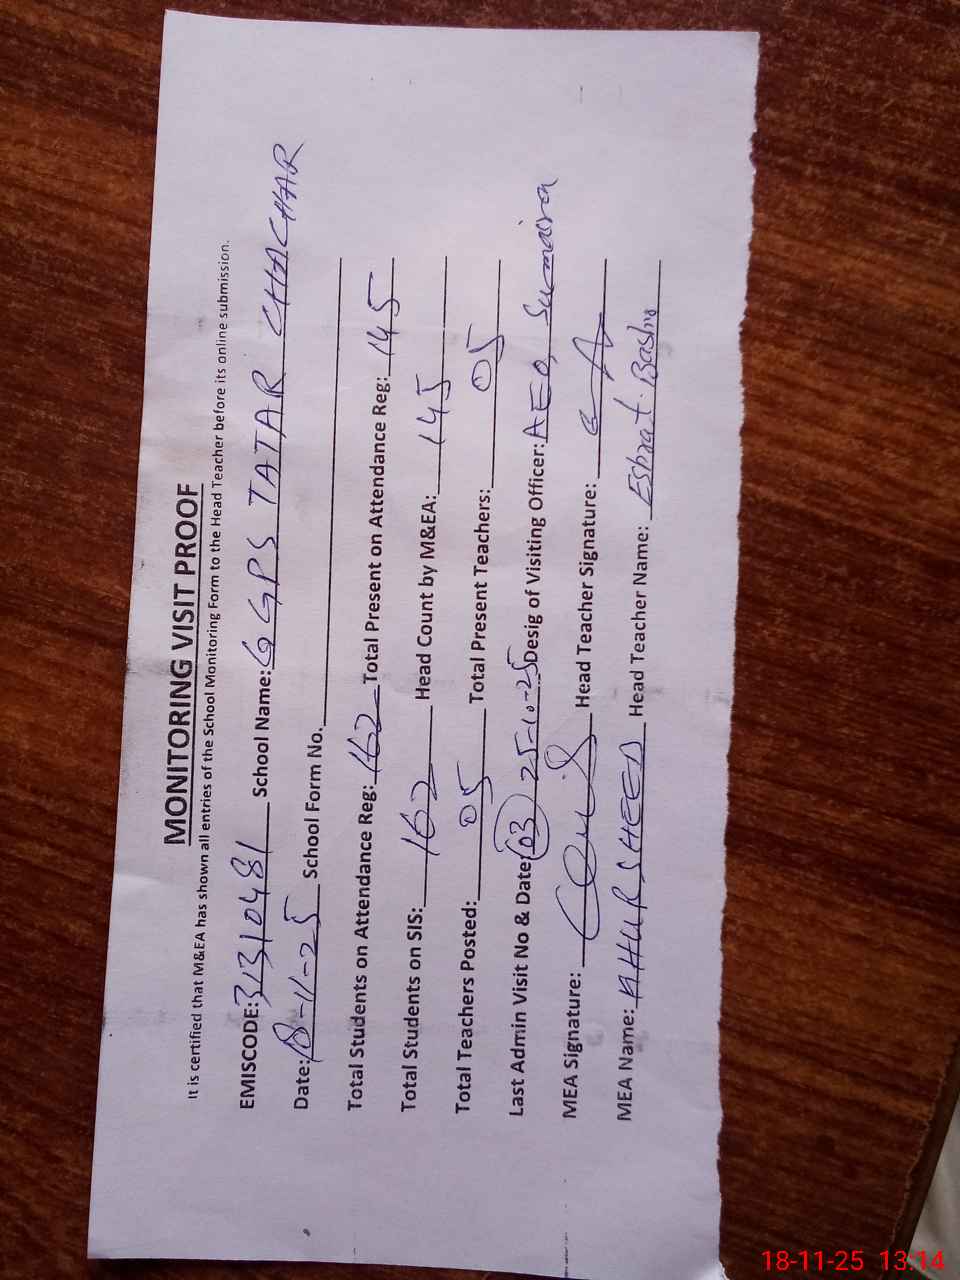 MONITORING VISIT PROOF
It is certified that M&EA has shown all entries of the School Monitoring Form to the Head Teacher before its online submission.
EMISCODE: 31310481 School Name: GGPS TATAR CHACHAR
Date: 18-11-25 School Form No.
Total Students on Attendance Reg: 162 Total Present on Attendance Reg: 145
Total Students on SIS: 162 Head Count by M&EA: 145
Total Teachers Posted: 05 Total Present Teachers: 05
Last Admin Visit No & Date: 03 25-10-25 Desig of Visiting Officer: AEO, Sumaira
MEA Signature: Head Teacher Signature:
MEA Name: KHURSHEED Head Teacher Name: Eshrat Bashir
18-11-25 13:14